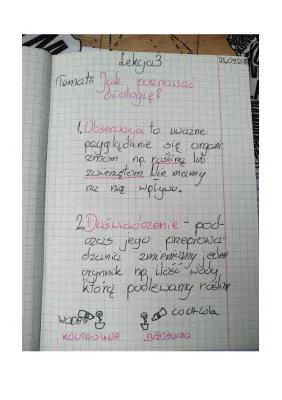 Lekcja 3
Temat: Jak poznawać
biologię?
1. Obserwacja to uważne
przyglądanie się organi
zmom np. roślinę lub
zwierzętom. Nie mamy
na nią wpływu.
2. Doświadczenie - pod-
czas jego przeprowa-
dzania zmieniamy jeden
czynnik np ilość wody,
którą podlewamy roślinę
WODA COCA-COLA
KONTROLNA BADAWCZA